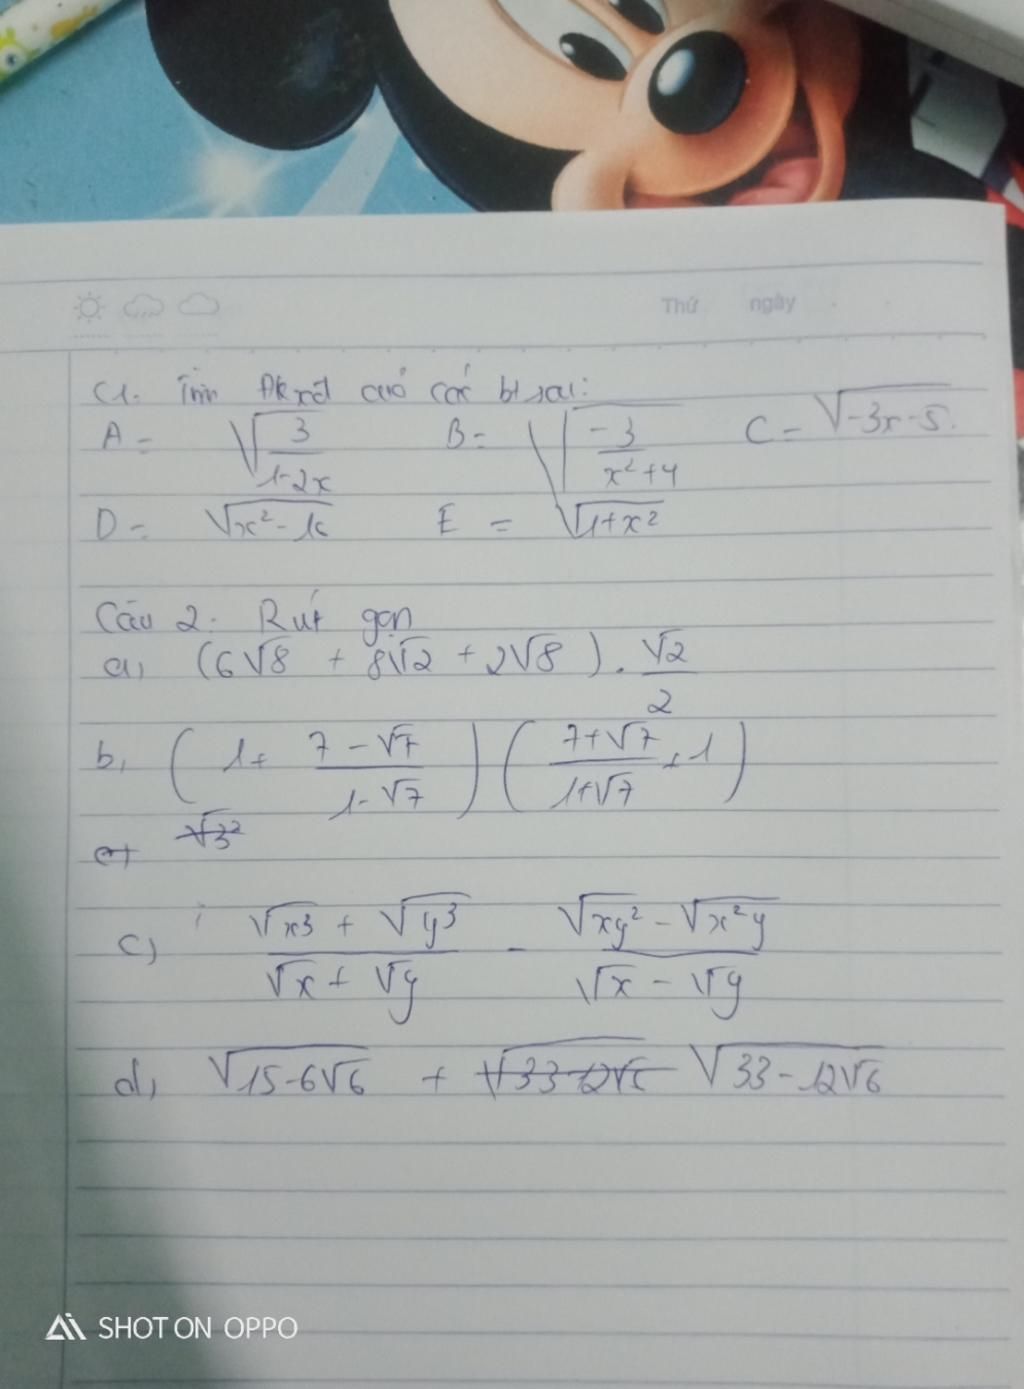 Thứ ngày
C1. Tìm Đkxđ của các bt sau:
A = √(3/(1-2x)) B = √(-3/(x²+4)) C = √(-3x-5).
D = √(x²-16) E = √(1+x²)
Câu 2. Rút gọn
a, (6√8 + 8√2 + 2√8) . √2/2
b, (1 + (7-√7)/(1-√7)) ((7+√7)/(1+√7) + 1)
c) (√x³ + √y³)/(√x + √y) - (√xy² - √x²y)/(√x - √y)
d, √(15-6√6) + √(33-12√6)
SHOT ON OPPO